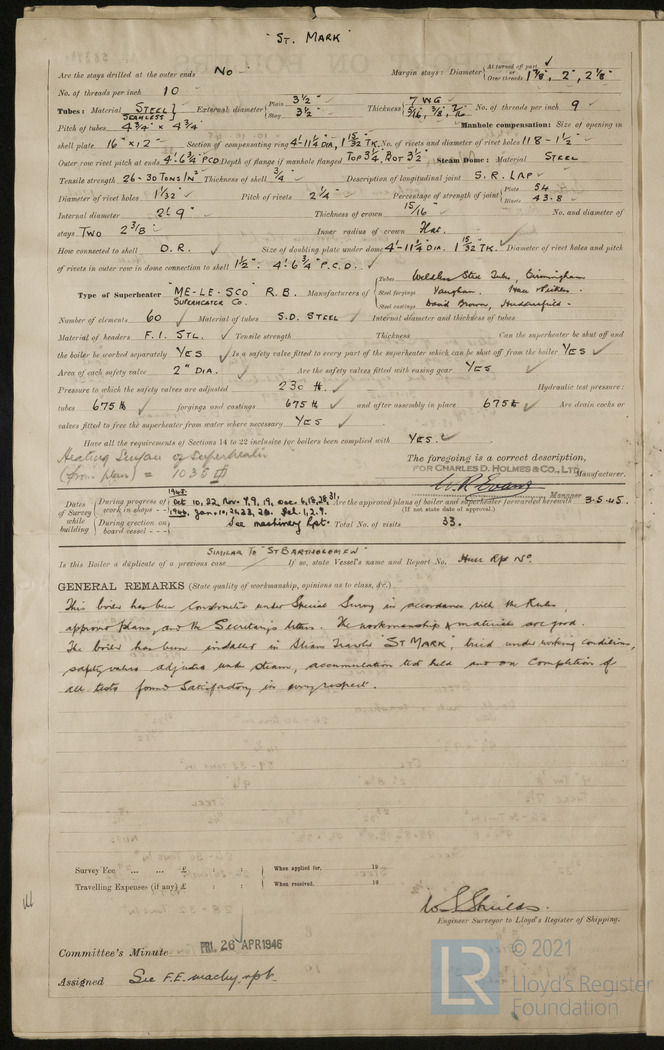 "ST. MARK"
Are the stays drilled at the outer ends No Margin stays: Diameter { At turned off part or Over threads 1 7/8", 2", 2 1/8"
No. of threads per inch 10
Tubes: Material STEEL SEAMLESS External diameter { Plain 3 1/2" Stay 3 1/2" Thickness { 7 WG 5/16, 3/8, 7/16 No. of threads per inch 9
Pitch of tubes 4 3/4" x 4 3/4" Manhole compensation: Size of opening in
shell plate 16" x 12" Section of compensating ring 4'-11 1/4" DIA, 1 15/32" TK. No. of rivets and diameter of rivet holes 118 - 1 1/2"
Outer row rivet pitch at ends 4'. 6 3/4" P.C.D. Depth of flange if manhole flanged TOP 3 1/4, BOT 3 1/2" Steam Dome: Material STEEL
Tensile strength 26-30 TONS/IN² Thickness of shell 3/4" Description of longitudinal joint S. R. LAP
Diameter of rivet holes 1 1/32" Pitch of rivets 2 1/4" Percentage of strength of joint { Plate 54 Rivets 43.8
Internal diameter 2'. 9" Thickness of crown 15/16" No. and diameter of
stays TWO 2 3/8" Inner radius of crown Flat.
How connected to shell D. R. Size of doubling plate under dome 4'-11 1/4" DIA. 1 15/32" TK. Diameter of rivet holes and pitch
of rivets in outer row in dome connection to shell 1 1/2". 4'. 6 3/4" P.C.D.
Type of Superheater "ME-LE-SCO" R. B. SUPERHEATER CO. Manufacturers of { Tubes Weldless Steel Tubes, Birmingham
Steel forgings Vaughan.
Steel castings David Brown, Huddersfield.
Number of elements 60 Material of tubes S.D. STEEL Internal diameter and thickness of tubes
Material of headers F.I. STL. Tensile strength Thickness Can the superheater be shut off and
the boiler be worked separately YES Is a safety valve fitted to every part of the superheater which can be shut off from the boiler YES
Area of each safety valve 2" DIA. Are the safety valves fitted with easing gear YES
Pressure to which the safety valves are adjusted 230 lb. Hydraulic test pressure:
tubes 675 lb forgings and castings 675 lb and after assembly in place 675 lb Are drain cocks or
valves fitted to free the superheater from water where necessary YES
Have all the requirements of Sections 14 to 22 inclusive for boilers been complied with YES.
Heating Surface of Superheater
(from plan) = 1035 ☐'
The foregoing is a correct description,
FOR CHARLES D. HOLMES & CO., LTD. Manufacturer.
W. R. Evans Manager
Dates of Survey while building { During progress of work in shops - - 1945. Oct 10, 22, Nov. 7, 9, 19, Dec. 6, 18, 28, 31. Are the approved plans of boiler and superheater forwarded herewith 3.5.45.
1946. Jan. 10, 26, 23, 28. Feb. 1, 2, 7. (If not state date of approval.)
During erection on board vessel - - - See machinery Rpt. Total No. of visits 33.
SIMILAR TO "ST BARTHOLOMEW"
Is this Boiler a duplicate of a previous case If so, state Vessel's name and Report No. Hull Rpt No.
GENERAL REMARKS (State quality of workmanship, opinions as to class, &c.)
This boiler has been constructed under Special Survey in accordance with the Rules,
approved plans, and the Secretary's letters. The workmanship & materials are good.
The boiler has been installed in Steam Trawler "ST MARK", tried under working conditions,
safety valves adjusted under steam, accumulation test held and on Completion of
all tests found Satisfactory in every respect.
Survey Fee ... ... £ : : When applied for, 19
Travelling Expenses (if any) £ : : When received, 19
W S Shields.
Engineer Surveyor to Lloyd's Register of Shipping.
Committee's Minute FRI. 26 APR 1946
Assigned See F.E. machy. rpt.
LR
© 2021
Lloyd's Register
Foundation